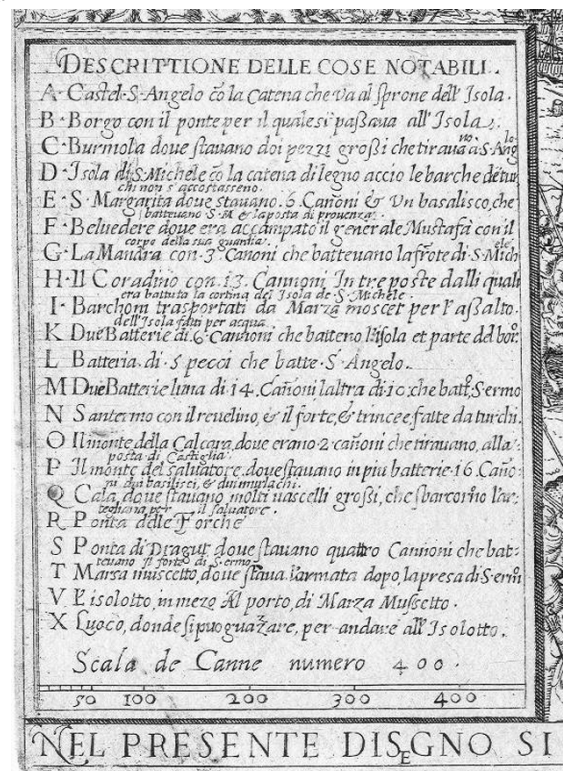 DESCRITTIONE DELLE COSE NOTABILI.
A· Castel·S·Angelo cõ la Catena che va al sprone dell'Isola·
B· Borgo con il ponte per il quale si paßaua all'Isola.
C· Burmola doue stauano doi pezzi großi che tirauano à·S·Angelo
D· Isola di S·Michele cõ la catena di legno accio le barche de tur
chi non s'accostasseno·
E· S· Margarita doue stauano·6·Cañoni & Vn basalisco, che
battevano S·M & la posta di prouenza·
F· Beluedere doue era accampato il generale Mustafà con il
corpo della sua guardia·
G· La Mandra con·3·Cañoni che battevano la frõte di S·Michele
H· Il Coradino con·13·Cannoni In tre poste dalli quali
era battuta la cortina del Isola de S·Michele·
I· Barchoni trasportati da Marza moscet per l'aßalto·
dell'Isola fatti per acqua
K Due Batterie di·6·Cannoni che batteno l'isola et parte del bor:
L Batteria·di·5 pecci che batte·S·Angelo·
M Due Batterie l'una di 14·Cañoni l'altra di·10·che batt. S·ermo
N Santermo con il reuelino, & il forte, & trincee, fatte da turchi·
O Il monte della Calcara, doue erano·2·cañoni che tirauano, alla,
posta di Castiglia·
P Il monte del saluatore·doue stauano in piu batterie·16·Caño:
ni dui basilisci, & dui murlachi·
Q Cala, doue stauano molti uascelli großi, che sbarcorño l'ar:
tegliaria per il saluatore·
R Ponta delle Forche
S Ponta di Dragut doue stauano quattro Cannoni che bat:
teuano il forte di S·ermo
T Marsa muscetto, doue staua l'armata dopo, la presa di S·ermo
V L'isolotto, in mezo Al porto, di Marza Mussetto·
X Luoco, donde si puo guazzare, per andare all'Isolotto·
Scala de Canne numero 400·
50 100 200 300 400
NEL PRESENTE DISEGNO SI